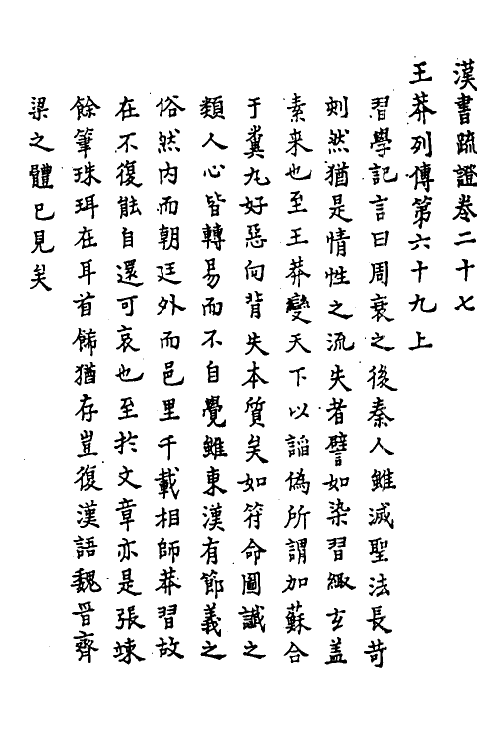 漢書疏證卷二十七
王莽列傳第六十九上
習學記言曰周衰之後秦人雖滅聖法長苛
刻然猶是情性之流失者譬如染習緅玄蓋
素来也至王莽變天下以謟偽所謂加蘇合
于糞丸好惡向背失本質矣如符命圖讖之
類人心皆轉易而不自覺雖東漢有節義之
俗然内而朝廷外而邑里千載相師莽習故
在不復能自還可哀也至於文章亦是張竦
餘筆珠珥在耳首餙猶存豈復漢語魏晉齊
梁之體已見矣